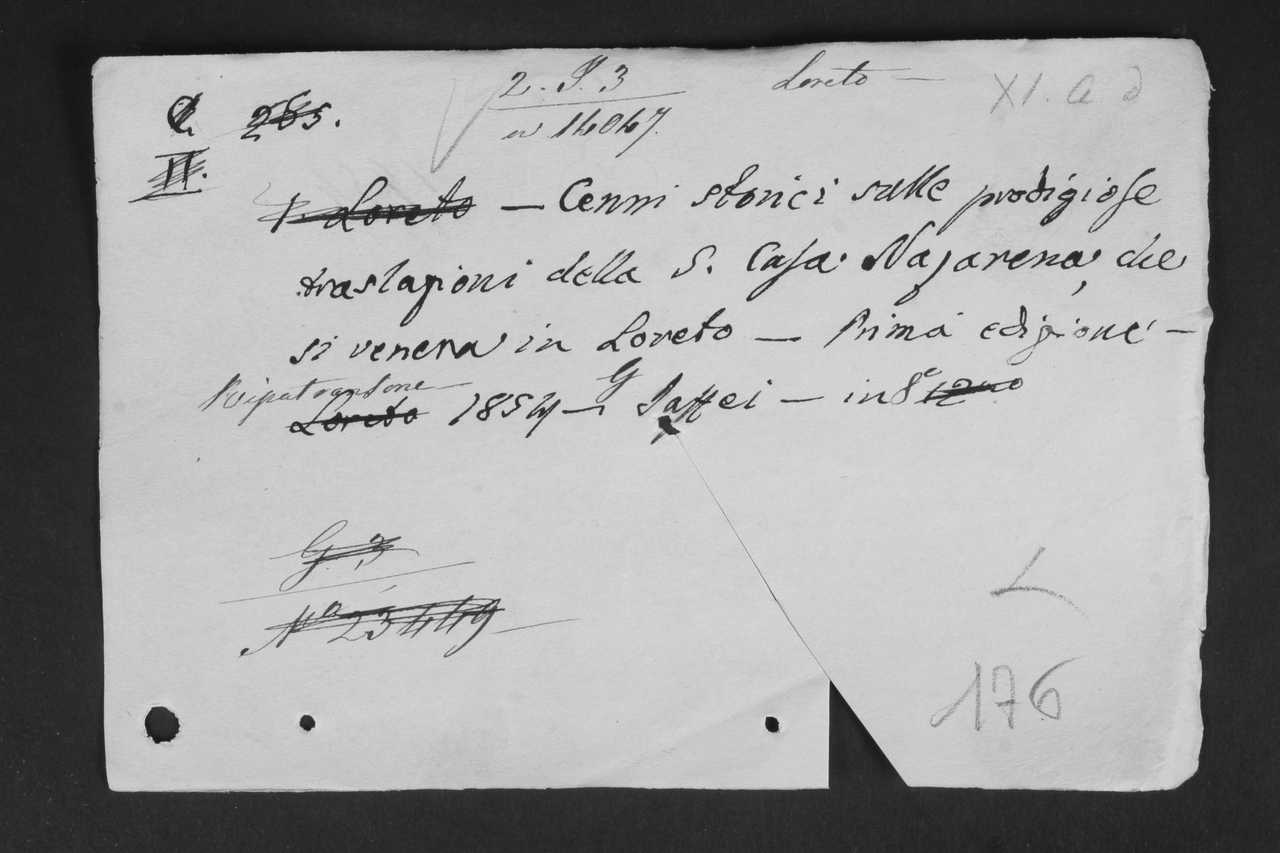 2. P. 3
Loreto —
XI. a d
C. 265.
n° 14047.
II.
Loreto — Cenni storici sulle prodigiose
traslazioni della S. Casa Nazarena, che
si venera in Loreto — Prima edizione —
Ripatransone
Loreto 1854 — G Jaffei — in 8° 12mo
G. 3
N° 23449
176